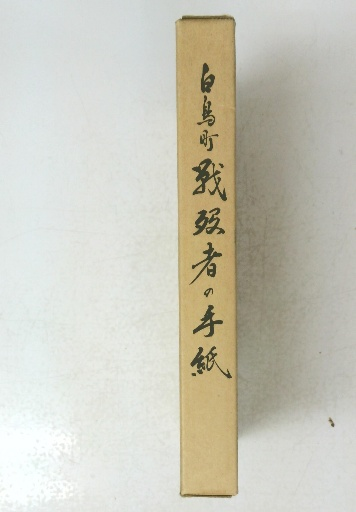 白鳥町 戦歿者の手紙